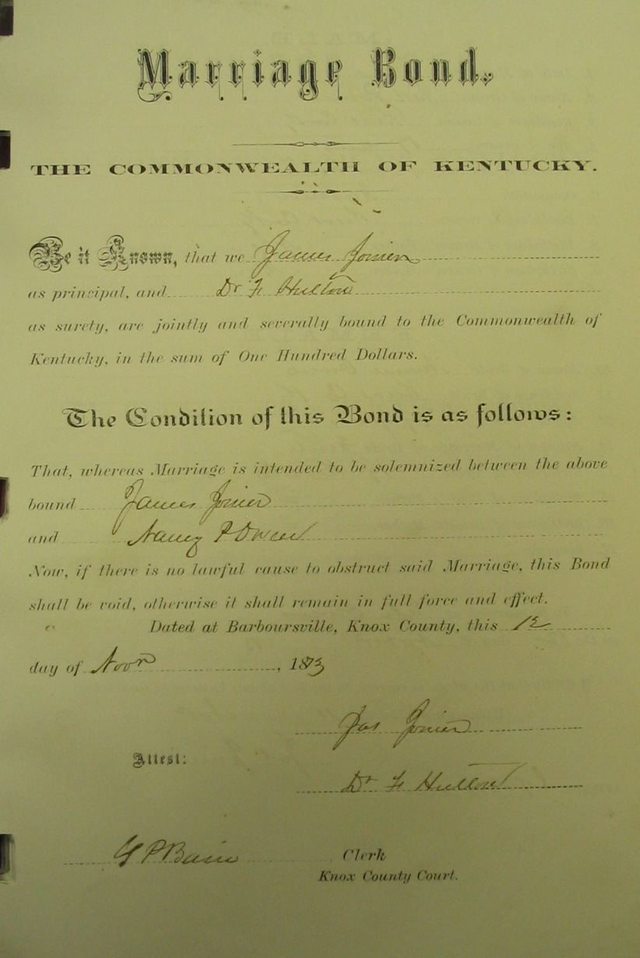 Marriage Bond.
THE COMMONWEALTH OF KENTUCKY.
Be it Known, that we James Joiner
as principal, and Dr F Hutton
as surety, are jointly and severally bound to the Commonwealth of
Kentucky, in the sum of One Hundred Dollars.
The Condition of this Bond is as follows:
That, whereas Marriage is intended to be solemnized between the above
bound James Joiner
and Nancy P
Now, if there is no lawful cause to obstruct said Marriage, this Bond
shall be void, otherwise it shall remain in full force and effect.
Dated at Barboursville, Knox County, this 12
day of Novr, 1873
Jas Joiner
Attest:
Dr F Hutton
G P Clerk
Knox County Court.